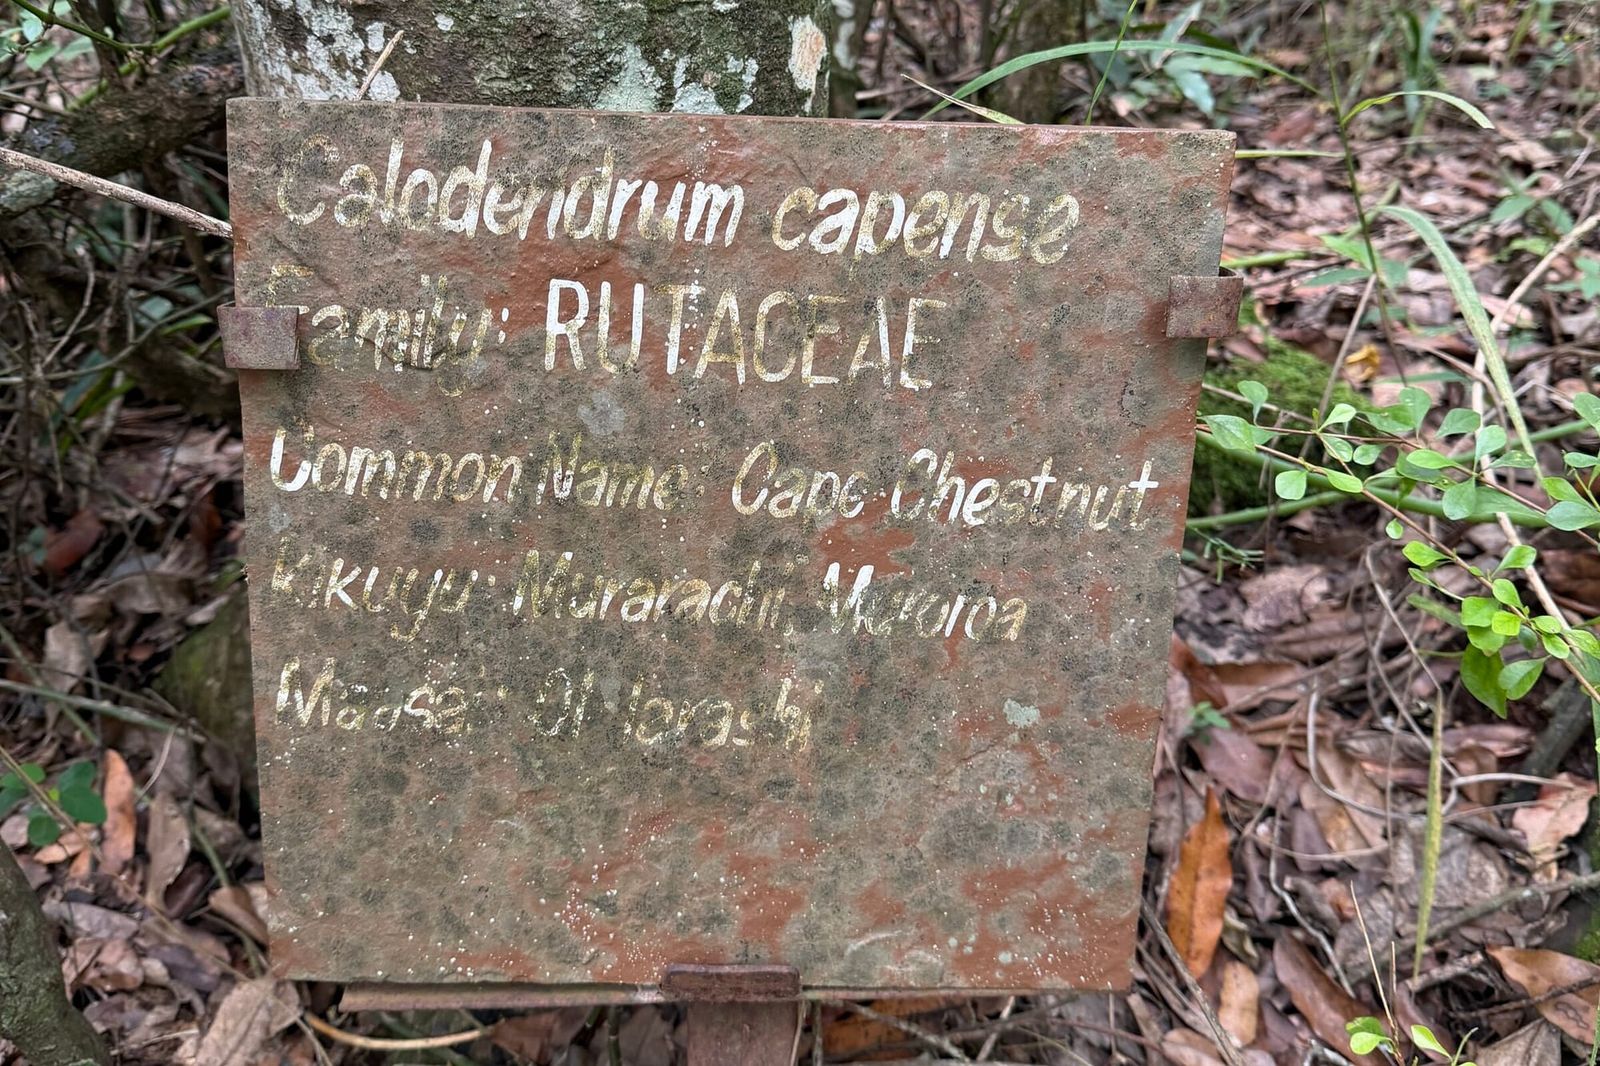 Calodendrum capense
Family: RUTACEAE
Common Name: Cape Chestnut
Kikuyu: Murarachi, Muroroa
Maasai: Ol larashi